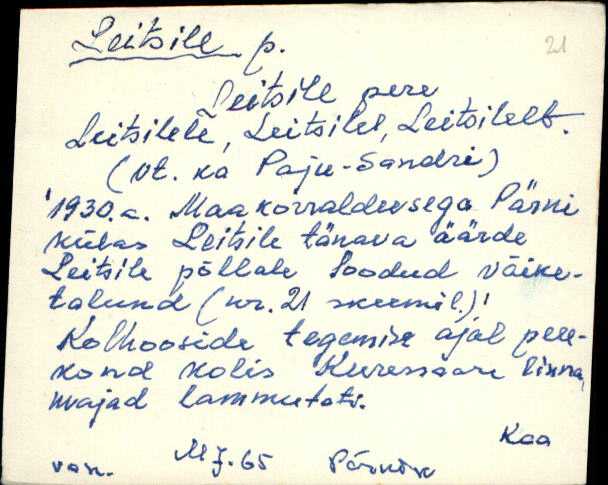 Leitsile p.
21
Leitsile pere
Leitsilele, Leitsilel, Leitsilelt.
(vt. ka Paju-Sandri)
'1930.a. Maakorraldusega Pärni
külas Leitsile tänava äärde
Leitsile põllale loodud väike-
talund (nr. 21 skeemil.)'
Kolhooside tegemise ajal pere-
kond kolis Kuressaare linna,
majad lammutati.
Kaa
van. MJ.65